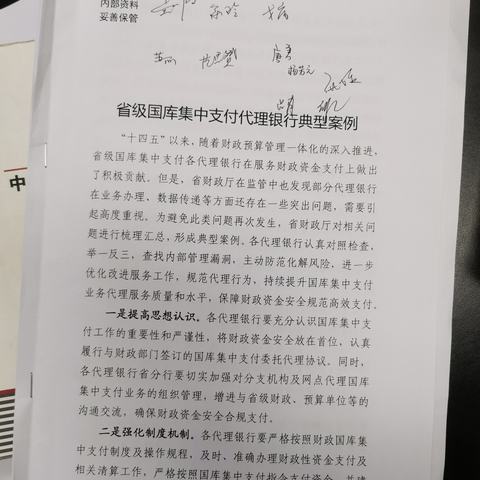 内部资料
妥善保管
省级国库集中支付代理银行典型案例
“十四五”以来，随着财政预算管理一体化的深入推进，
省级国库集中支付各代理银行在服务财政资金支付上做出
了积极贡献。但是，省财政厅在监管中也发现部分代理银行
在业务办理、数据传递等方面还存在一些突出问题，需要引
起高度重视。为避免此类问题再次发生，省财政厅对相关问
题进行梳理汇总，形成典型案例。各代理银行认真对照检查，
举一反三，查找内部管理漏洞，主动防范化解风险，进一步
优化改进服务工作，规范代理行为，持续提升国库集中支付
业务代理服务质量和水平，保障财政资金安全规范高效支付。
一是提高思想认识。各代理银行要充分认识国库集中支
付工作的重要性和严谨性，将财政资金安全放在首位，认真
履行与财政部门签订的国库集中支付委托代理协议。同时，
各代理银行省分行要切实加强对分支机构及网点代理国库
集中支付业务的组织管理，增进与省级财政、预算单位等的
沟通交流，确保财政资金安全合规支付。
二是强化制度机制。各代理银行要严格按照财政国库集
中支付制度及操作规程，及时、准确办理财政性资金支付及
相关清算工作，严格按照国库集中支付指令支付资金，并建
中